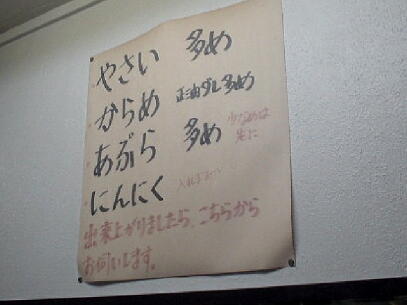 やさい 多め
からめ 正油ダレ多め
あぶら 多め 少なめは
先に
にんにく 入れますか
出来上がりましたら、こちらから
お伺いします。